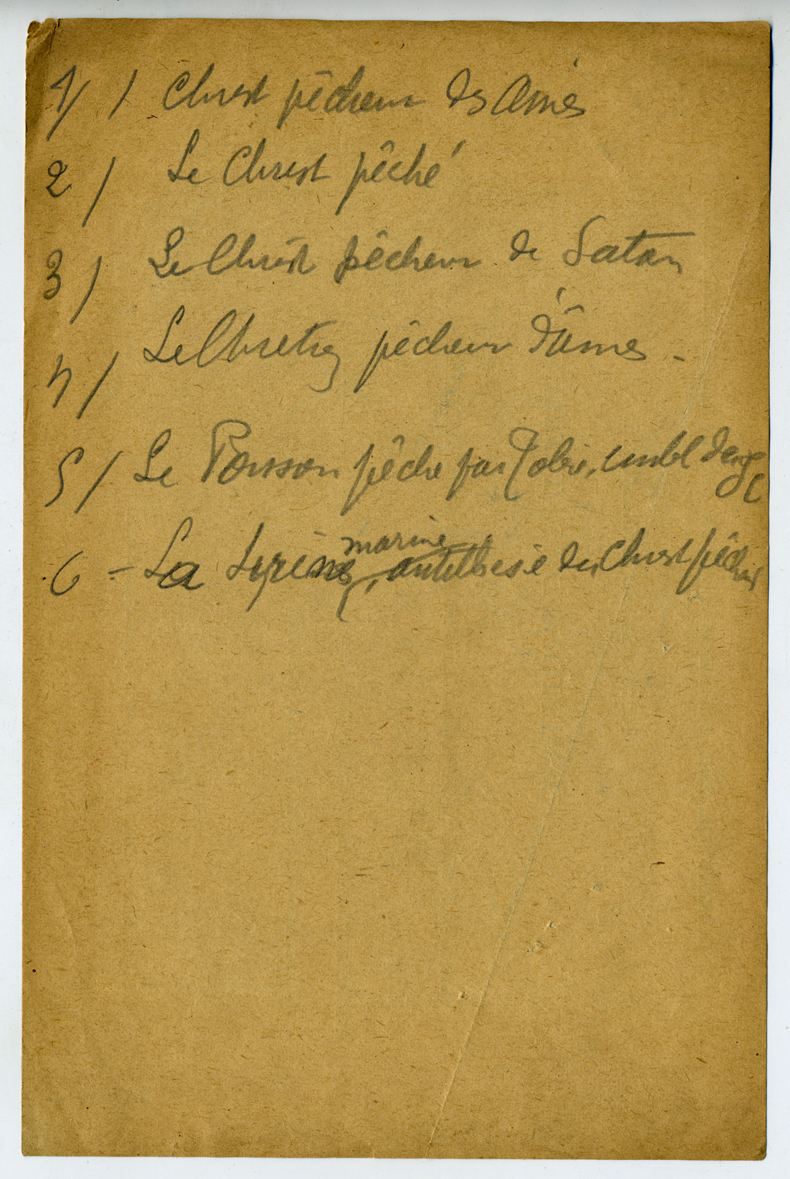 1/ / Christ pêcheur des Ames
2/ Le Christ pêché
3/ Le Christ pêcheur de Satan
4/ Le Chretien pêcheur d'âmes -
5/ Le Poisson pêché par Tobie,
6 - La Syrène marine, antithèse du Christ pêcheur